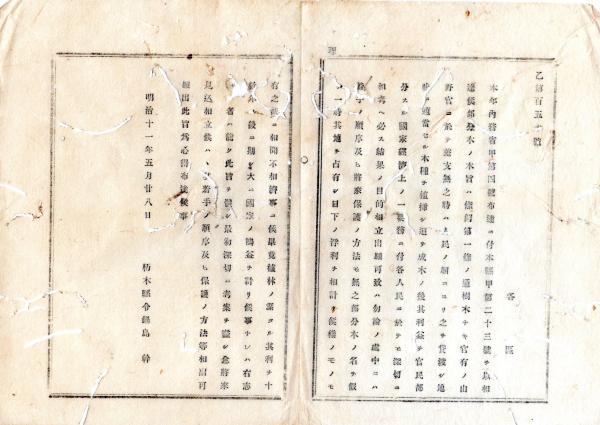 乙第百五十號
各區
本年內務省甲第四號布達ニ付本縣甲第二十三號ヲ以相
達候部分木ノ本旨ハ條例第一條ノ通樹木ナキ官有ノ山
野官ニ於テ差支無之時ハ人民ノ願ニヨリ之ヲ貸渡シ地
味ニ適當セル木種ヲ植揷シ追テ成木ノ後其利益ヲ官民部
分スル國家經濟上ノ一要務ニ付各人民ニ於テモ深切ニ
相考ヘ必ス結果ノ目的相立出願可致ハ勿論ノ處中ニハ
手ノ順序及ヒ將來保護ノ方法モ無之部分木ノ名ヲ假
一時其地ヲ占有シ目下ノ浮利ヲ相計リ候樣ノモノモ
有之候ニ相聞不相濟事ニ候畢竟植林ノ業タル其利ヲ十
數年ノ後ニ期シ大ニ國家ノ鴻益ヲ計リ候事ナレハ有志
者ハ能ク此旨ヲ體シ最初深切ニ考案ヲ盡シ愈將來
見込相立候ハヽ著手ノ順序及ヒ保護ノ方法等相副可
願出此旨爲心得布達候事
明治十一年五月廿八日
栃木縣令鍋島幹
理